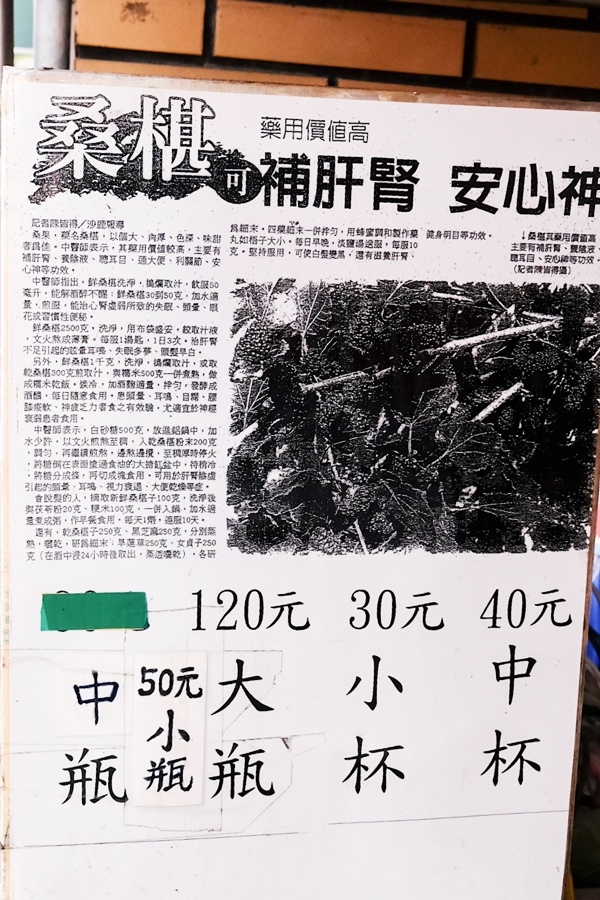 桑椹
藥用價值高
可補肝腎 安心神
記者陳皆得/沙鹿報導
桑果,藥名桑椹,以個大、肉厚、色深、味甜
者為佳。中醫師表示,其藥用價值較高,主要有
補肝腎、養陰液、聰耳目、通大便、利關節、安
心神等功效。
中醫師指出,鮮桑椹洗淨,搗爛取汁,飲服50
毫升,能解酒醉不醒;鮮桑椹30到50克,加水適
量,煎服,能治心腎虛弱所致的失眠、頭暈、眼
花或習慣性便秘。
鮮桑椹2500克,洗淨,用布袋盛安,絞取汁液
,文火熬成薄膏。每服1湯匙,1日3次,治肝腎
不足引起的眩暈耳鳴、失眠多夢、頭髮早白。
另外,鮮桑椹1千克,洗淨,搗爛取汁,或取
乾桑椹300克煎取汁,與糯米500克一併煮熟,做
成糯米乾飯,俟冷,加酒麴適量,拌勻,發酵成
酒釀,每日隨意食用。患頭暈、耳鳴、目糊、腰
膝痠軟、神疲乏力者食之有效驗,尤適宜於神經
衰弱患者食用。
中醫師表示,白砂糖500克,放進鋁鍋中,加
水少許,以文火煎熬至稠,入乾桑椹粉末200克
,調勻,再繼續煎熬,邊熬邊攪,至稠厚時停火
,將糖倒在表面塗過食油的大搪瓷盆中,待稍冷
,將糖分成條,再切成塊食用。可用於肝腎陰虛
引起的頭暈、耳鳴、視力衰退、大便乾燥等症。
會脫髮的人,摘取新鮮桑椹子100克,洗淨後
與茯苓粉20克、粳米100克,一併入鍋,加水適
量煮成粥,作早餐食用,每天1劑,連服10天。
還有,乾桑椹子250克、黑芝麻250克,分別蒸
熟,曬乾,研為細末;旱蓮草250克、女貞子250
克(在酒中浸24小時後取出,蒸透曬乾),各研
為細末。四藥細末一併拌勻,用蜂蜜調和製作藥
丸如梧子大小。每日早晚,淡鹽湯送服,每服10
克。堅持服用,可使白髮變黑,還有滋養肝腎、
健身明目等功效。
桑椹其藥用價值高
主要有補肝腎、養陰液、
聰耳目、安心神等功效。
(記者陳皆得攝)
120元 30元 40元
中瓶
50元小瓶
大瓶
小杯
中杯